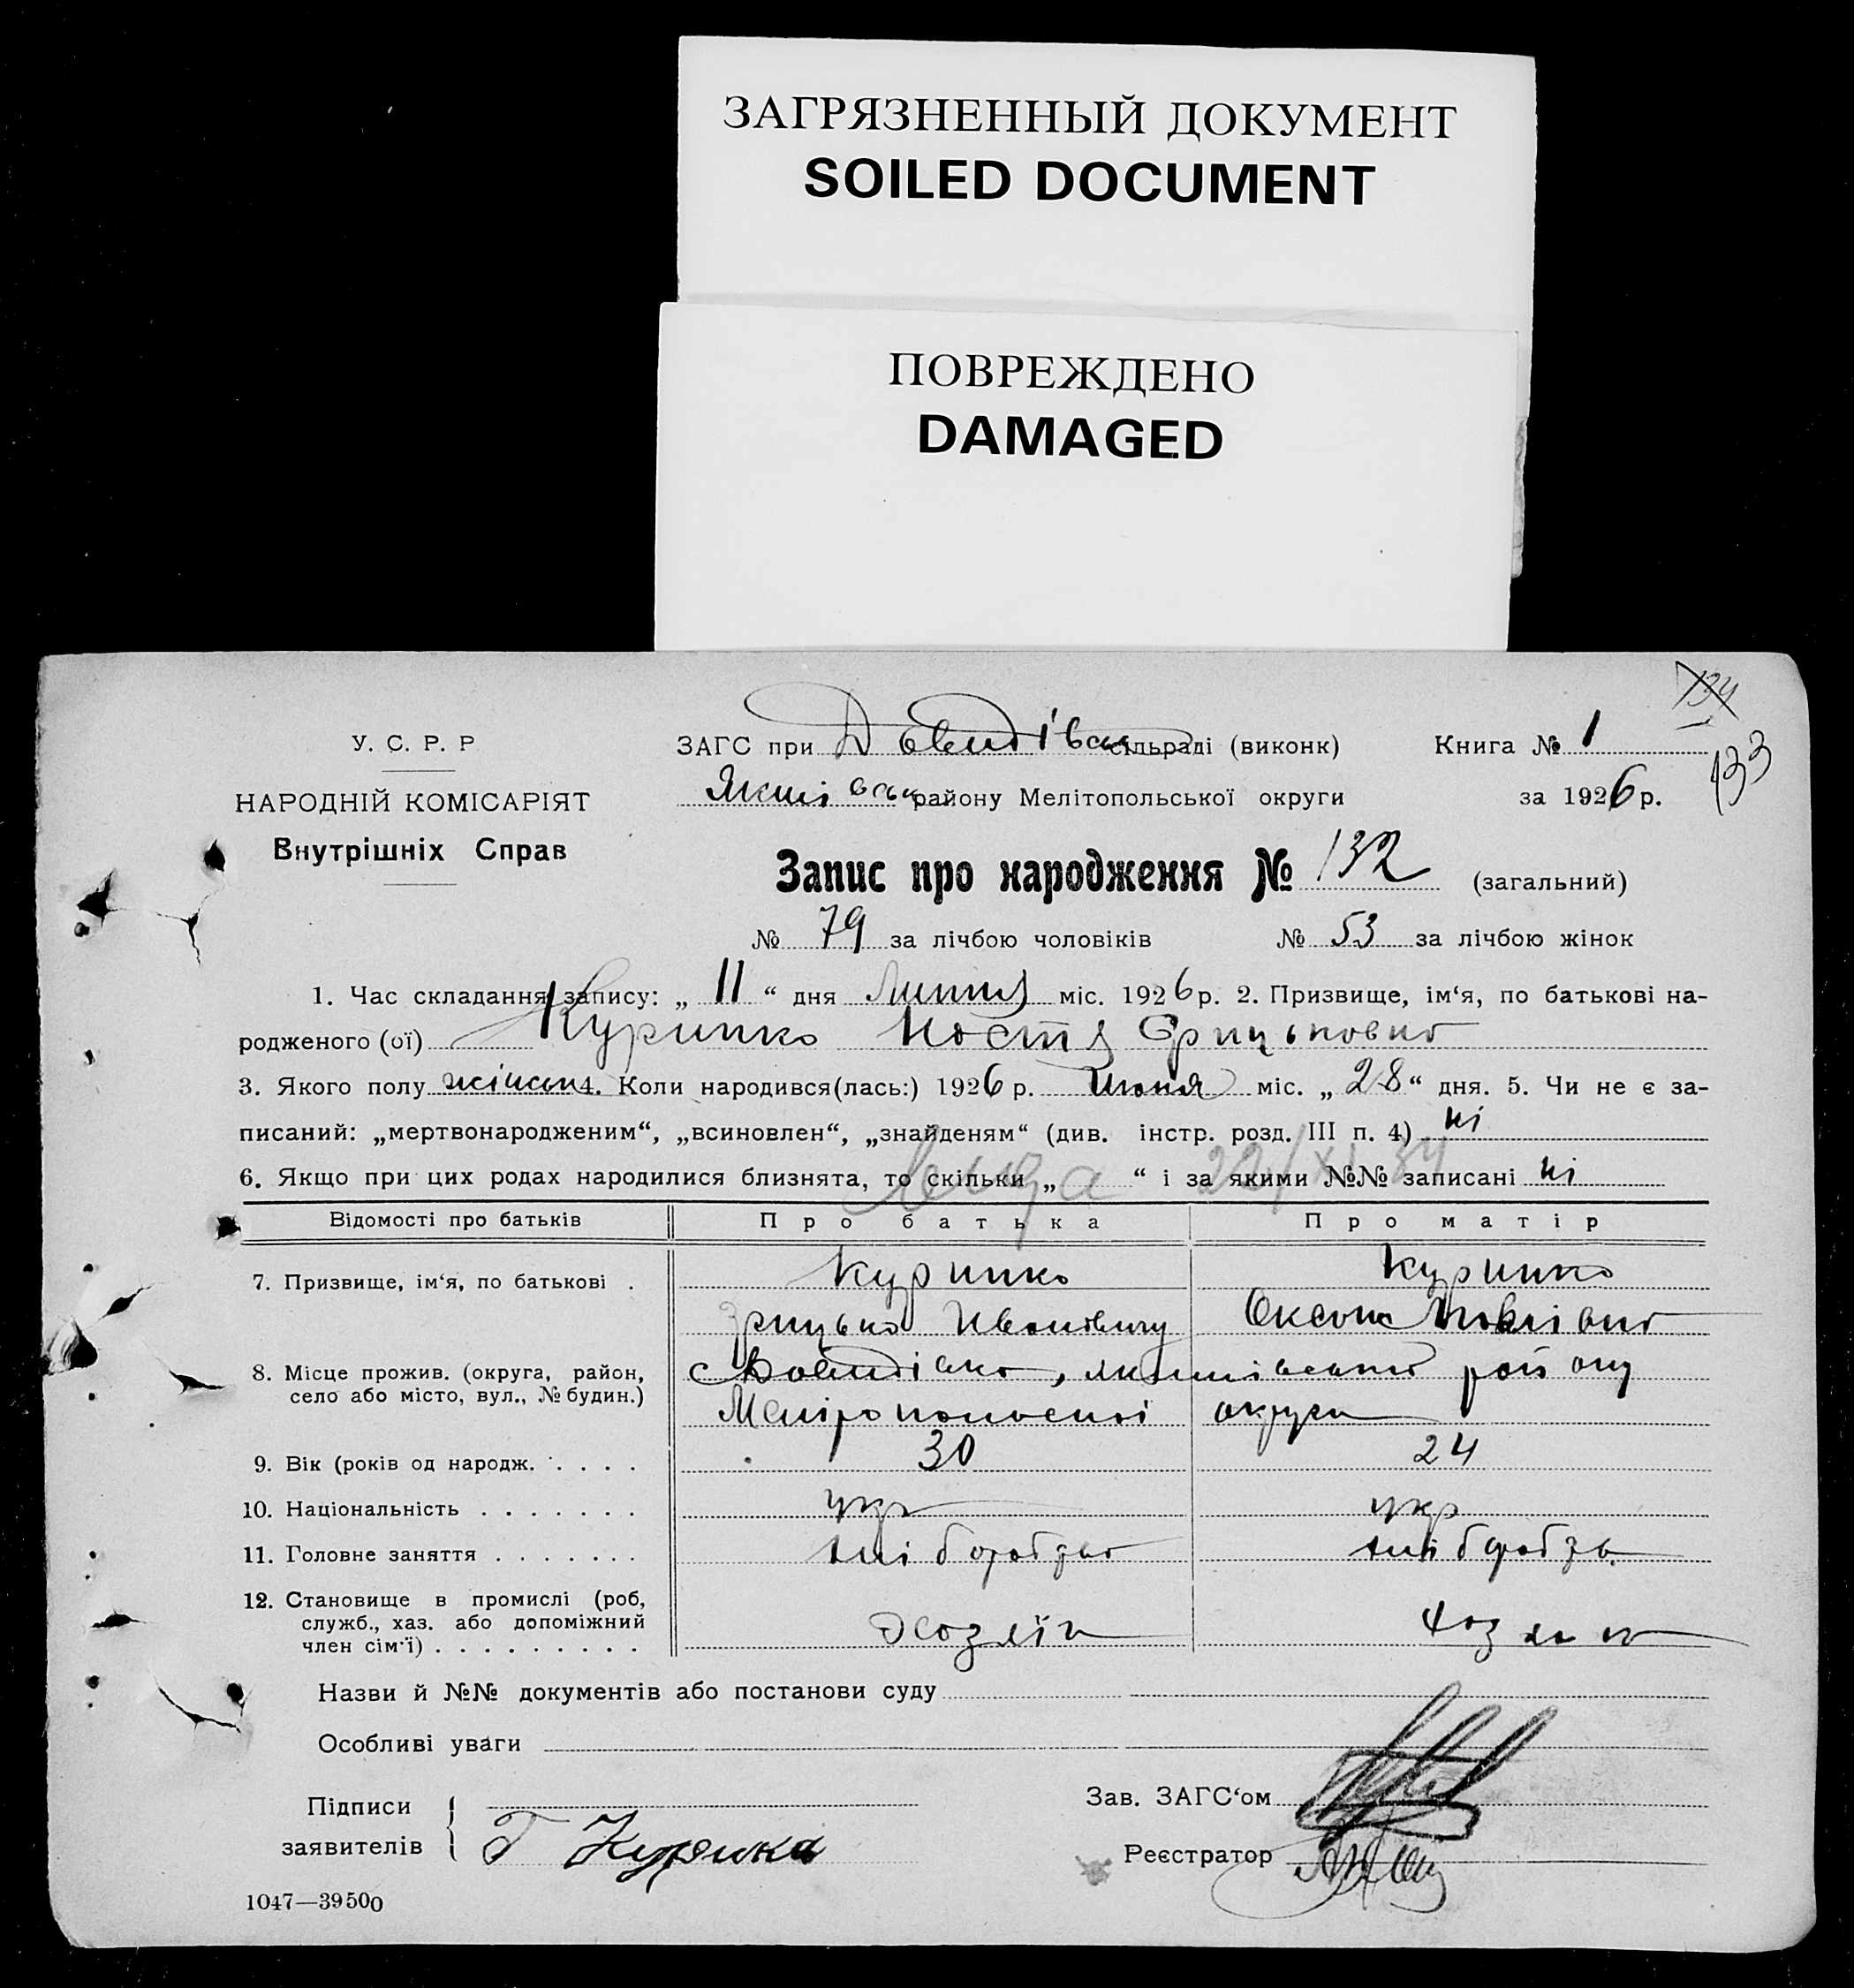 ЗАГРЯЗНЕННЫЙ ДОКУМЕНТ
SOILED DOCUMENT
ПОВРЕЖДЕНО
DAMAGED
134
133
У. С. Р. Р
НАРОДНІЙ КОМІСАРІЯТ
Внутрішніх Справ
ЗАГС при Давидівськ сільраді (виконк) Книга № 1
Якимівськ району Мелітопольської округи за 1926 р.
Запис про народження № 132 (загальний)
№ 79 за лічбою чоловіків № 53 за лічбою жінок
1. Час складання запису: „ 11 “ дня Липня міс. 1926 р. 2. Призвище, ім‘я, по батькові на-
родженого (ої) Курипко Настя Грицьковна
3. Якого полу жіноч 4. Коли народився(лась:) 1926 р. Июня міс. „ 28 “ дня. 5. Чи не є за-
писаний: „мертвонародженим“, „всиновлен“, „знайденям“ (див. інстр. розд. III п. 4) ні
6. Якщо при цих родах народилися близнята, то скільки „ “ і за якими №№ записані ні
Відомості про батьків Про батька Про матір
7. Призвище, ім‘я, по батькові . Курипко Курипко
Грицько Иванович Оксана
8. Місце прожив. (округа, район, с Давидівка, якимівського району
село або місто, вул., № будин.) Мелітопольської округи
9. Вік (років од народж. . . . . 30 24
10. Національність . . . . . . . укр укр
11. Головне заняття . . . . . . . хліборобзво хліборобзв.
12. Становище в промислі (роб,
служб., хаз. або допоміжний
член сім‘ї) . . . . . . . . . Хозяїн Хозяйка
Назви й №№ документів або постанови суду
Особливі уваги
Підписи
заявителів Г Курипка
Зав. ЗАГС‘ом
Реєстратор
1047—39500